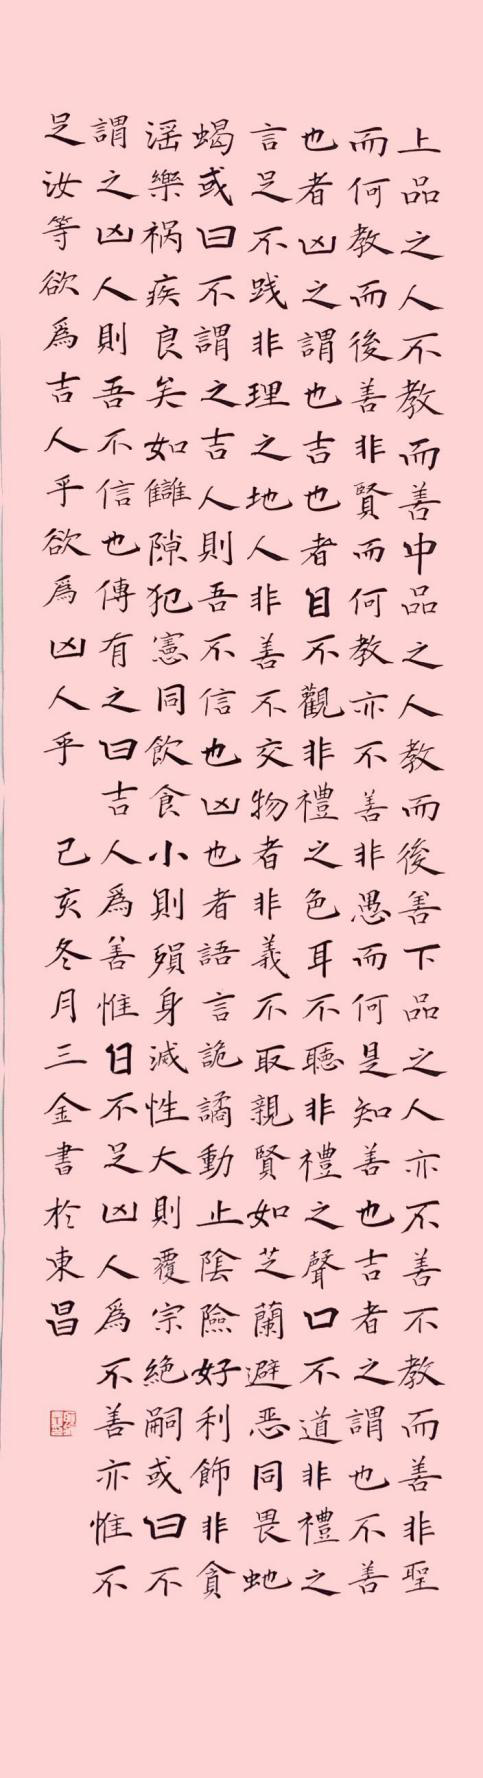 上品之人不教而善中品之人教而後善下品之人亦不善不教而善非聖
而何教而後善非賢而何教亦不善非愚而何是知善也吉者之謂也不善
也者凶之謂也吉也者目不觀非禮之色耳不聽非禮之聲口不道非禮之
言足不践非理之地人非善不交物者非義不取親賢如芝蘭避恶同畏虵
蝎或曰不謂之吉人則吾不信也凶也者語言詭譎動止陰險好利飾非貪
滛樂祸疾良矣如讎隙犯憲同飲食小則殞身滅性大則覆宗絶嗣或曰不
謂之凶人則吾不信也傳有之曰吉人爲善惟日不足凶人爲不善亦惟不
足汝等欲爲吉人乎欲爲凶人乎 己亥冬月三金書於東昌